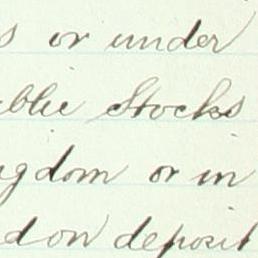 s or under
blic Stocks
gdom or in
don deposit